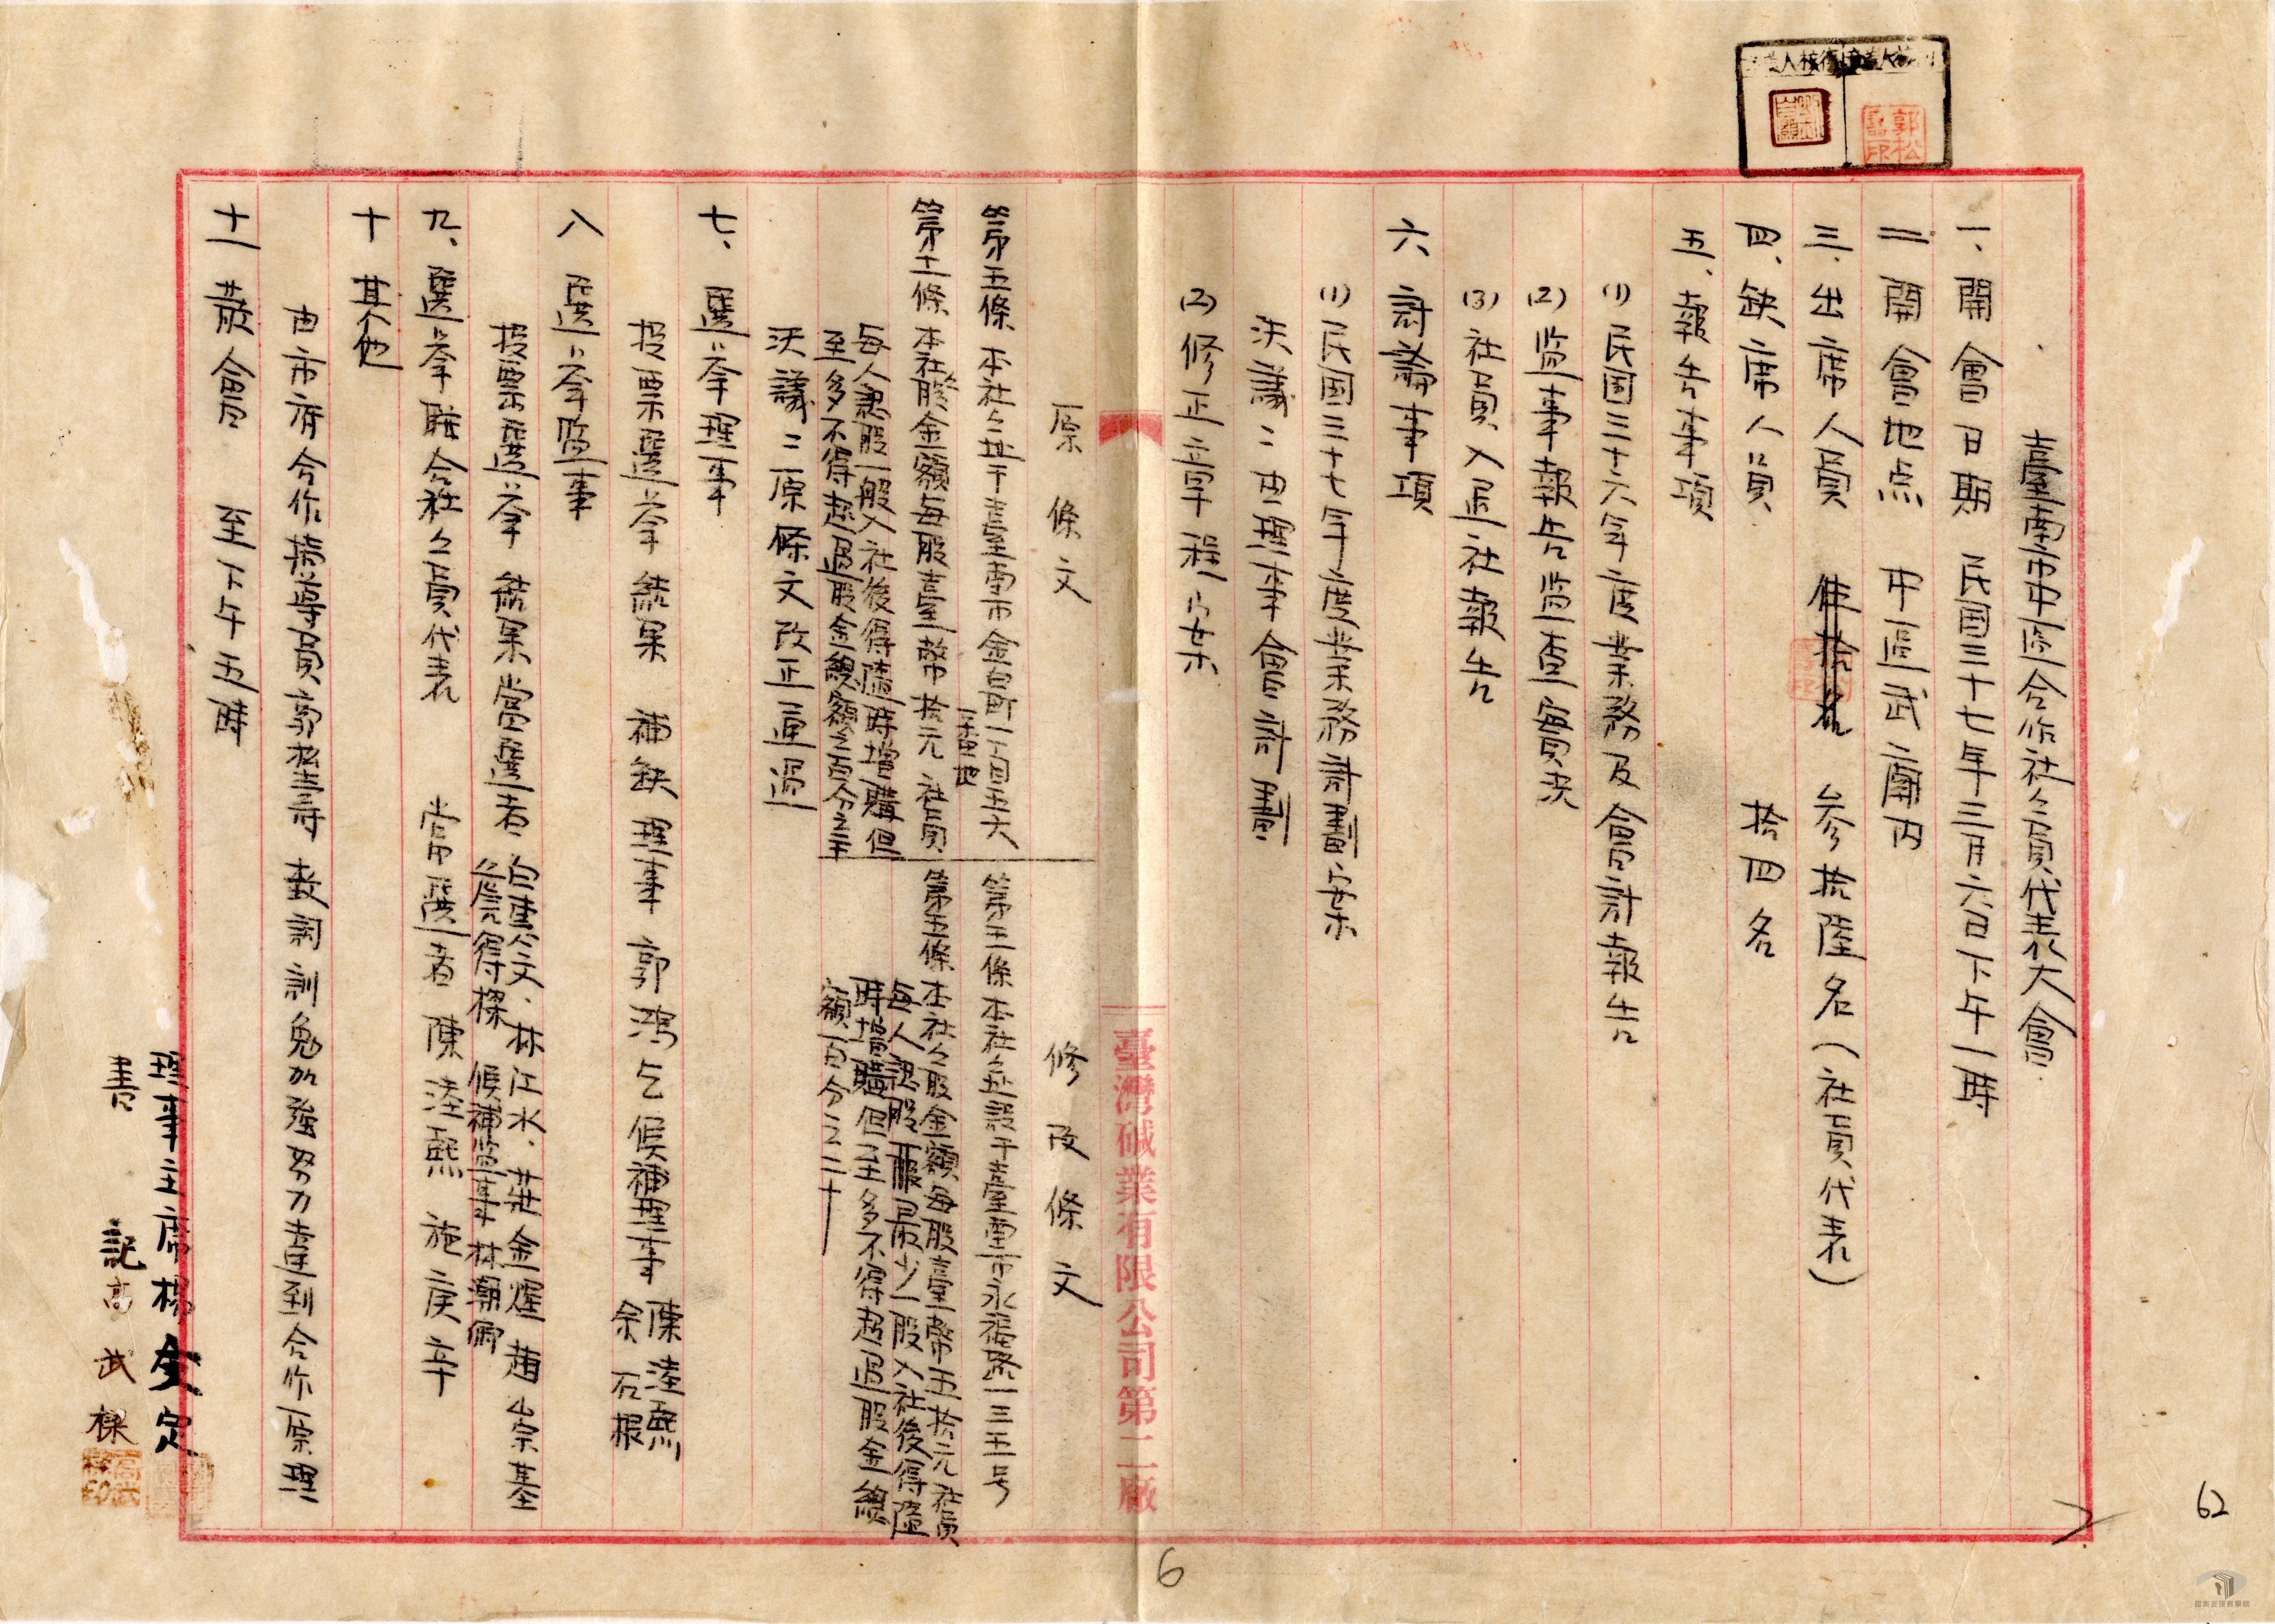 臺南市中區合作社社員代表大會
一、開會日期 民国三十七年三月六日下午一時
二 開會地点 中區武廟內
三、出席人員 參拾陸名(社員代表)
四、缺席人員 拾四名
五、報告事項
(1) 民国三十六年度業務及會計報告
(2) 监事報告监查實況
(3) 社員入退社報告
六 討論事項
(1) 民国三十七年度業務計劃案
決議:由理事會計劃
(2) 修正章程案
原條文
修改條文
第五條 本社社址于臺南市
第五條 本社社址設于臺南市永福路一三五号
本社股金額每股臺幣拾元 社員
每人 股一般入社後得隨時增購但
至多不得超過股金總額之百分之二十
第五條 本社社股金額每股臺幣五拾元社員
每人認股 最少一股入社後得隨
時增購但至多不得超過股金總
額百分之二十
決議:原條文改正通過
七、選举理事
投票選举結果 補缺理事 郭鴻 候補理事 陳 熙
余石根
八 選举监事
投票選举 結果當選者 白 文、林江水、莊金煌 趙崇基
得樑 候補监事 林潮
九、選举聯合社社員代表 當選者 陳 熙 施庚辛
十 其他
由市府合作指導員郭松壽 致詞訓勉加強努力達到合作原理
十一 散會 至下午五時
理事主席楊 定
書 記 高武樑
臺灣碱業有限公司第二廠
郭松
6
62